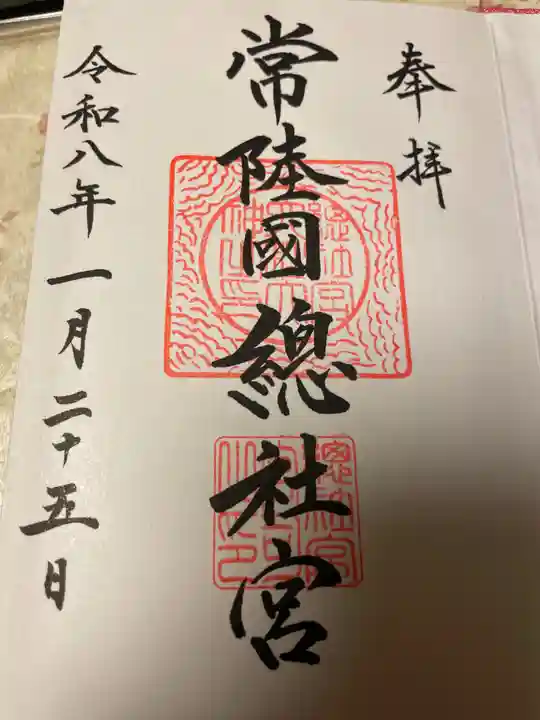 奉拝
常陸國總社宮
令和八年一月二十五日
總社宮